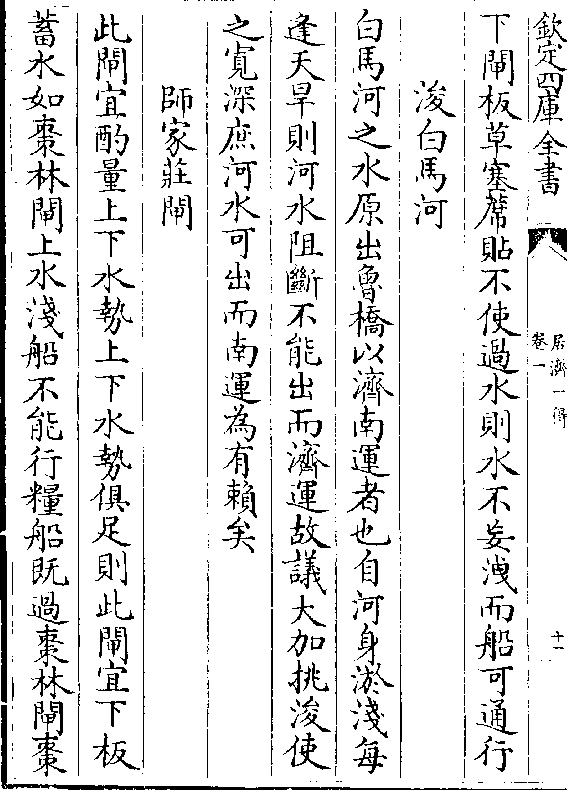 欽定四庫全書
居濟一得
卷一
十一
下閘板草塞蓆貼不使過水則水不妄洩而船可通行
浚白馬河
白馬河之水原出魯橋以濟南運者也自河身淤淺每
逢天旱則河水阻斷不能出而濟運故議大加挑浚使
之寬深庶河水可出而南運為有賴矣
師家莊閘
此閘宜酌量上下水勢上下水勢俱足則此閘宜下板
蓄水如棗林閘上水淺船不能行糧船既過棗林閘棗